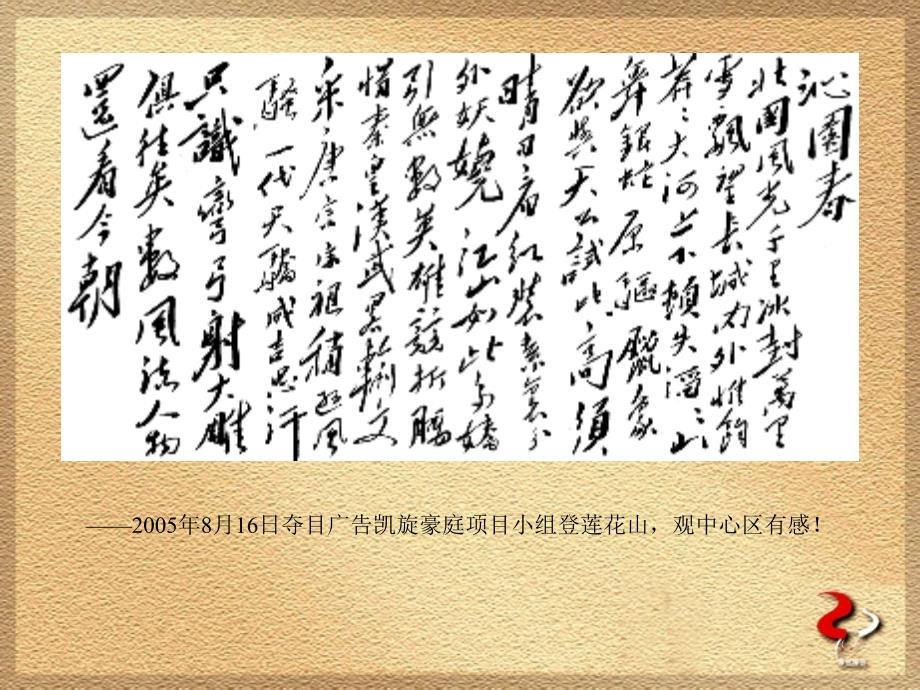 沁園春
北國風光千里冰封萬里
雪飄望長城內外惟餘
莽〻大河上下頓失滔〻山
舞銀蛇原驅臘象
欲與天公試比高須
晴日看紅裝素裹分
外妖嬈江山如此多嬌
引無數英雄競折腰
惜秦皇漢武畧輸文
采唐宗宋祖稍遜風
騷一代天驕成吉思汗
只識彎弓射大雕
俱往矣數風流人物
還看今朝
——2005年8月16日夺目广告凯旋豪庭项目小组登莲花山，观中心区有感！